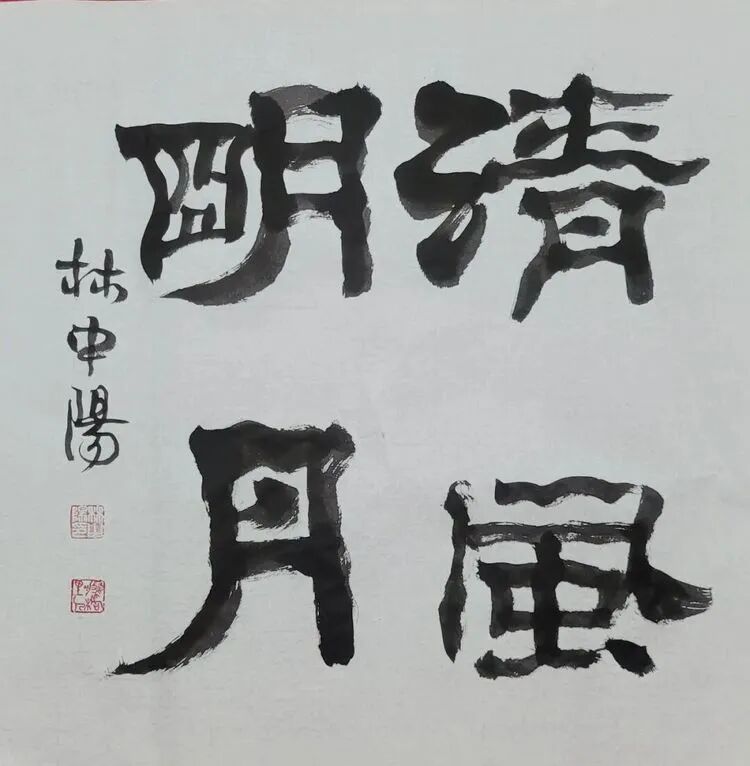 清風
明月
林中陽